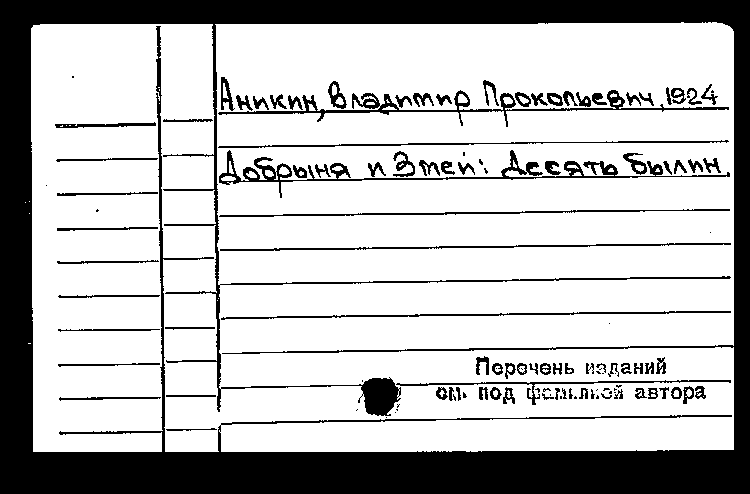 Аникин, Владимир Прокопьевич, 1924
Добрыня и Змей: Десять былин.
Перечень изданий
см. под фамилией автора